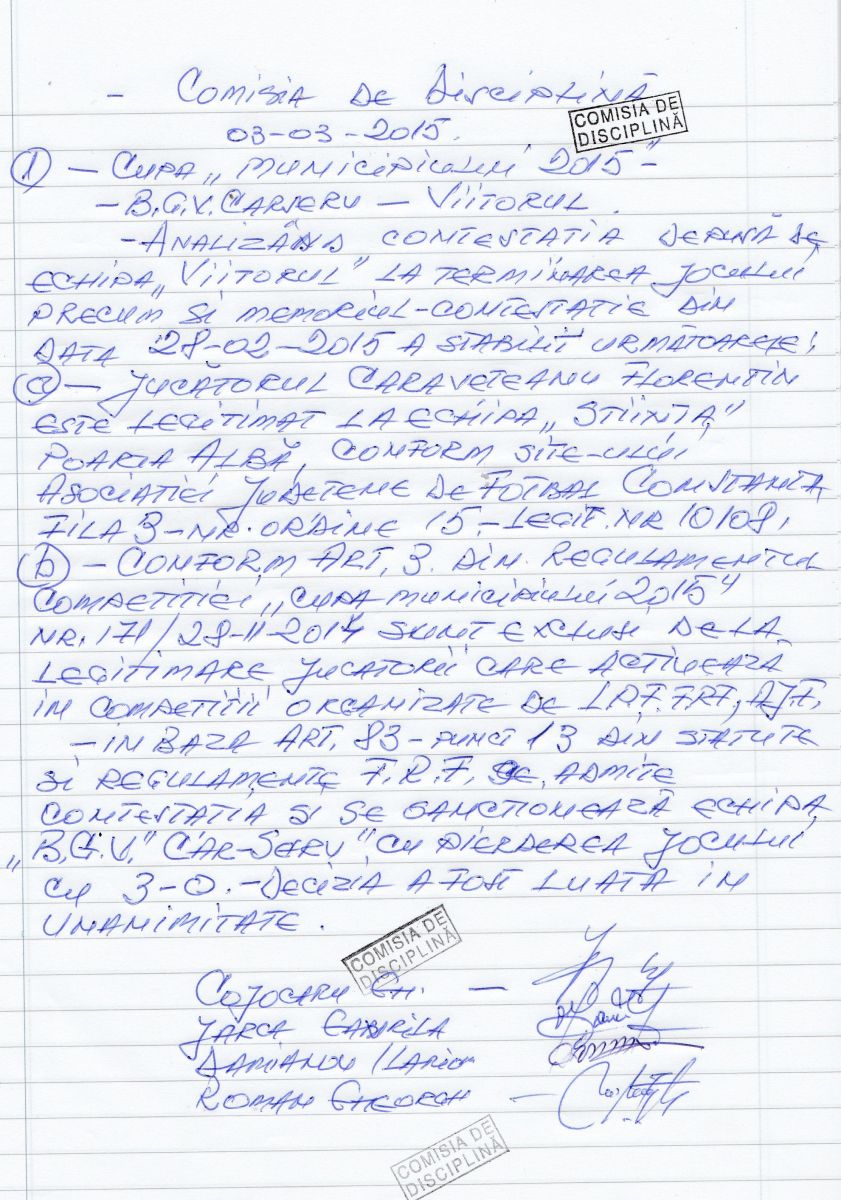 - COMISIA DE DISCIPLINĂ
COMISIA DE
DISCIPLINĂ
03-03-2015.
① - CUPA „MUNICIPIULUI 2015"-
- B.G.V. CARSERU - VIITORUL.
- ANALIZÂND CONTESTATIA DEPUSĂ DE
ECHIPA „VIITORUL" LA TERMINAREA JOCULUI
PRECUM SI MEMORIUL-CONTESTATIE DIN
DATA 28-02-2015 A STABILIT URMĂTOARELE:
ⓐ - JUCĂTORUL CARAVETEANU FLORENTIN
ESTE LEGITIMAT LA ECHIPA „STIINTA"
POARTA ALBĂ, CONFORM SITE-ULUI
ASOCIATIEI JUDETENE DE FOTBAL CONSTANTA,
FILA 3-NR. ORDINE 15.-LEGIT. NR 10108.
ⓑ - CONFORM ART. 3. DIN REGULAMENTUL
COMPETITIEI „CUPA MUNICIPIULUI 2015"
NR. 171/28-11-2014 SUNT EXCLUSI DE LA
LEGITIMARE JUCATORII CARE ACTIVEAZĂ
IN COMPETITII ORGANIZATE DE L.P.F. FRF, AJF.
- IN BAZA ART. 83-PUNCT 13 DIN STATUTE
SI REGULAMENTE F.R.F. SE ADMITE
CONTESTATIA SI SE SANCTIONEAZĂ ECHIPA
„B.G.V." CAR-SERV" CU PIERDEREA JOCULUI
CU 3-0.-DECIZIA A FOST LUATA IN
UNANIMITATE.
COMISIA DE
DISCIPLINĂ
COJOCARU GH. -
JARCA GABRILA
DAMIANOV ILARION
ROMAN GHEORGH -
COMISIA DE
DISCIPLINĂ